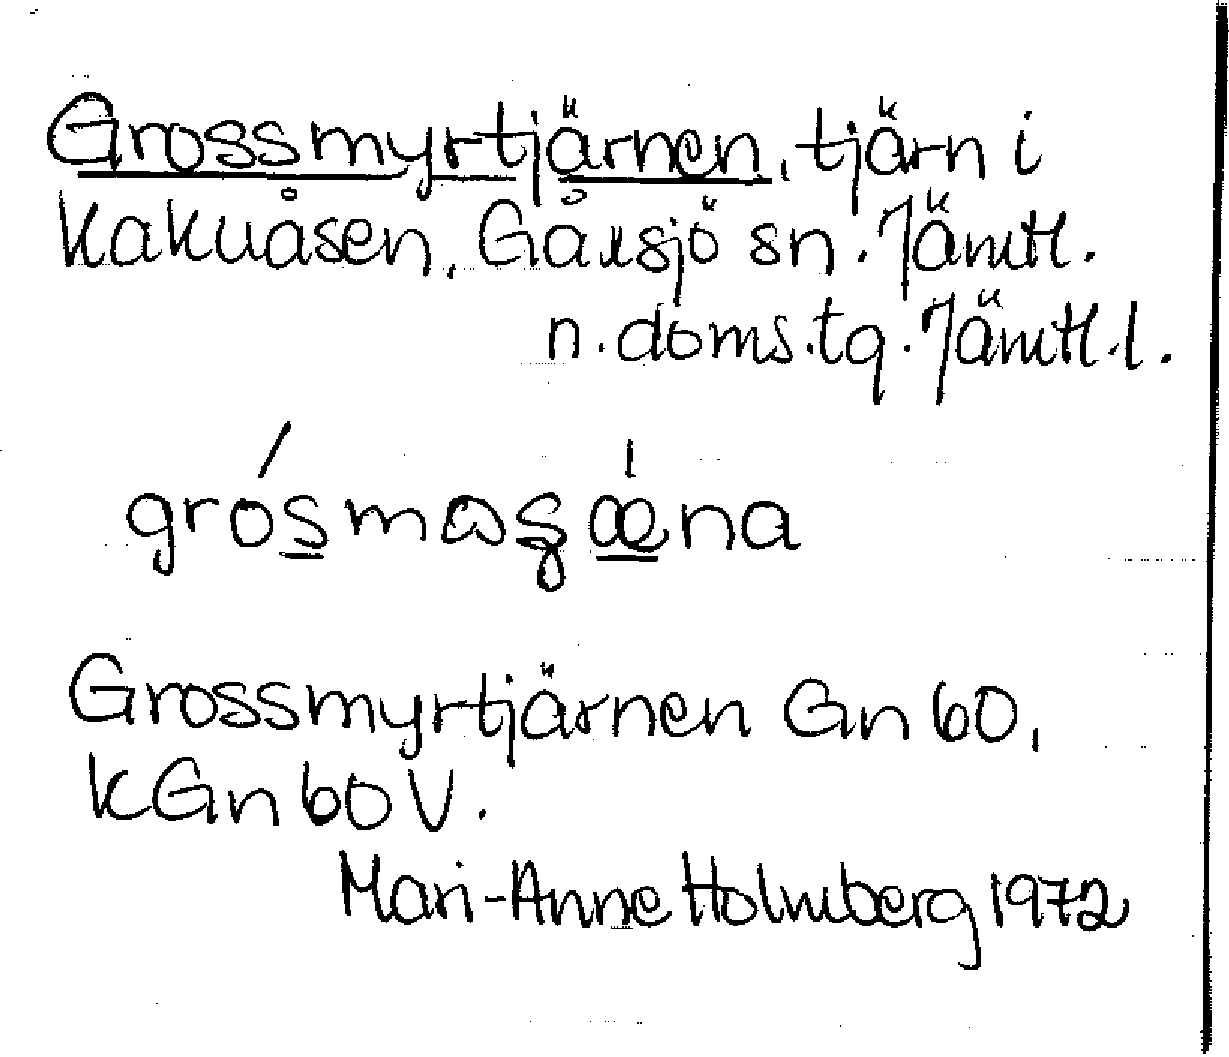 Grossmyrtjärnen, tjärn i
Kakuåsen, Gåxsjö sn. Jämtl.
n. doms. tg. Jämtl. l.
Grossmyrtjärnen Gn 60,
KGn 60 V.
Mari-Anne Holmberg 1972